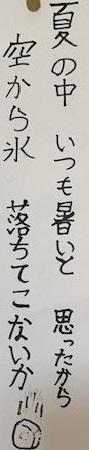 夏の中 いつも暑いと 思ったから
空から氷 落ちてこないか